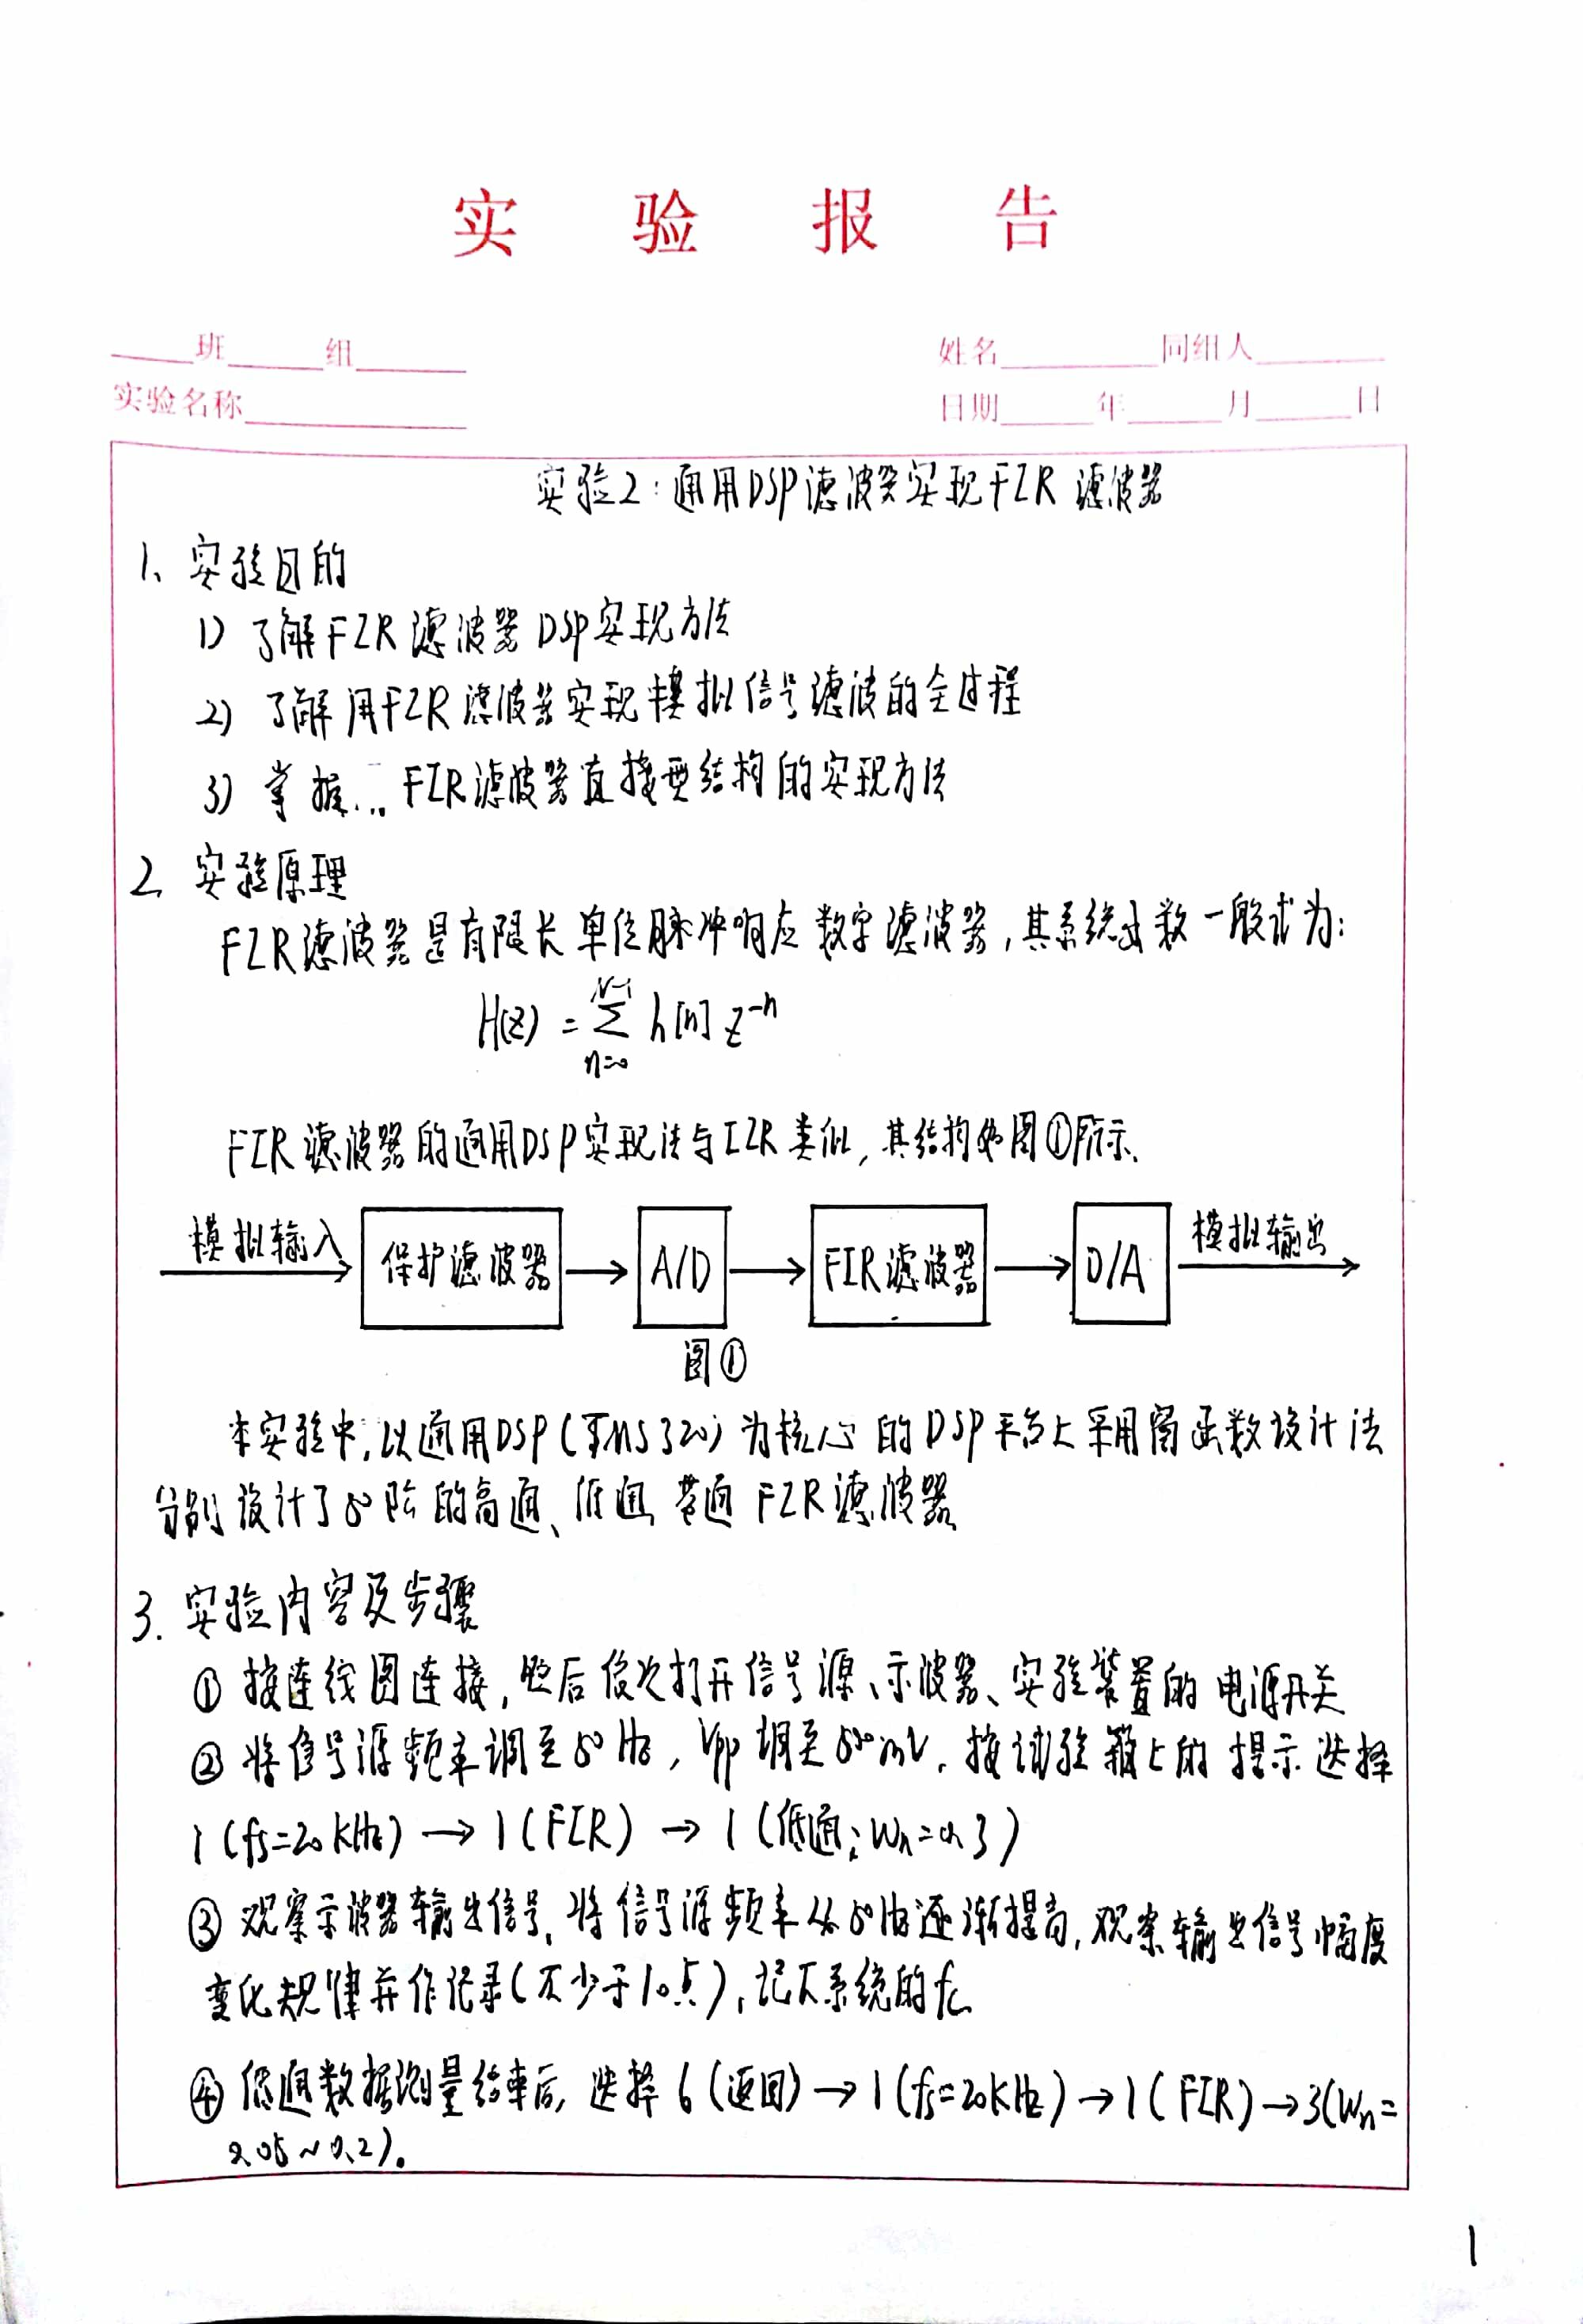 实验报告
班 组 姓名 同组人
实验名称 日期 年 月 日
实验2：通用DSP滤波器实现FIR滤波器
1、实验目的
1) 了解FIR滤波器DSP实现方法
2) 了解用FIR滤波器实现模拟信号滤波的全过程
3) 掌握... FIR滤波器直接型结构的实现方法
2、实验原理
FIR滤波器是有限长单位脉冲响应数字滤波器，其系统函数一般式为：
H(z) = \sum_{n=0}^{N-1} h[n] z^{-n}
FIR滤波器的通用DSP实现法与IIR类似，其结构如图①所示、
模拟输入 保护滤波器 A/D FIR滤波器 D/A 模拟输出
图①
本实验中，以通用DSP(TMS320)为核心的DSP平台上采用窗函数设计法
分别设计了50阶的高通、低通、带通FIR滤波器
3. 实验内容及步骤
① 按连线图连接，然后依次打开信号源、示波器、实验装置的电源开关
② 将信号源频率调至50Hz，Vpp调至500mV，按试验箱上的提示选择
1(fs=20kHz) → 1(FIR) → 1(低通；Wn=0.3)
③ 观察示波器输出信号，将信号源频率从50Hz逐渐提高，观察输出信号幅度
变化规律并作记录(不少于10点)，记下系统的fc
④ 低通数据测量结束后，选择6(返回)→1(fs=20kHz)→1(FIR)→3(Wn=
0.05~0.2)。
1